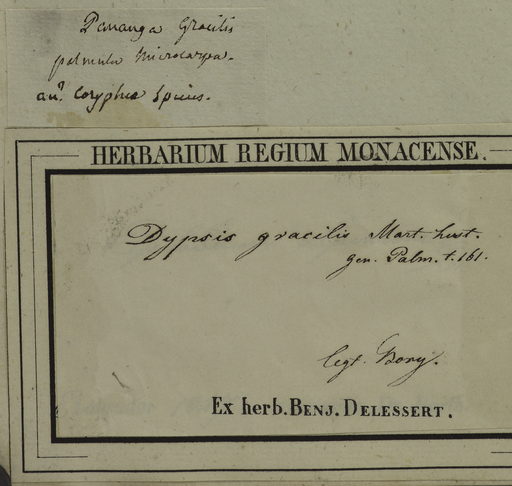 Pananga Gracilis
palmula Microcarpa.
an? Corypha Spuus.
HERBARIUM REGIUM MONACENSE.
Dypsis gracilis Mart. hist.
gen. Palm. t. 161.
legt. Bory.
Ex herb. BENJ. DELESSERT.